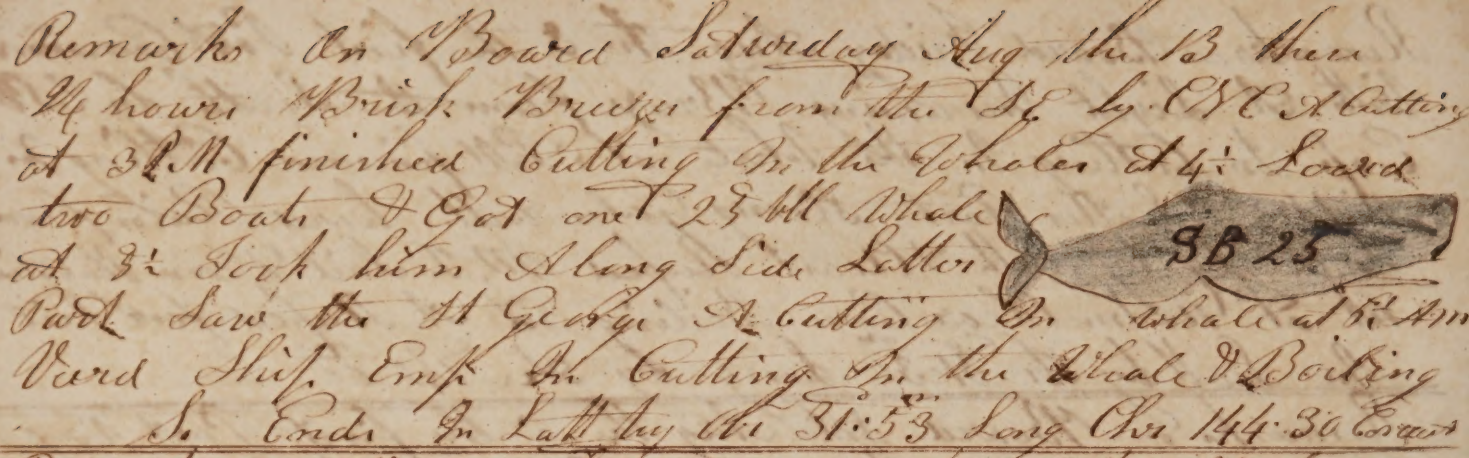 Remarks On Board Saturday Aug the 13 these
24 hours Brisk Breezes from the SE by E A Cutting
at 3 PM finished Cutting In the Whales at 4½ Lowered
two Boats & Got one 25 bll Whale
at 8½ Took him Along Side Latter
SB 25
Part Saw the St George A Cutting In whale at 6 Am
Ship Emp In Cutting In the Whale & Boiling
So Ends In Latt by Obs 31:53 Long Chr 144.30 East